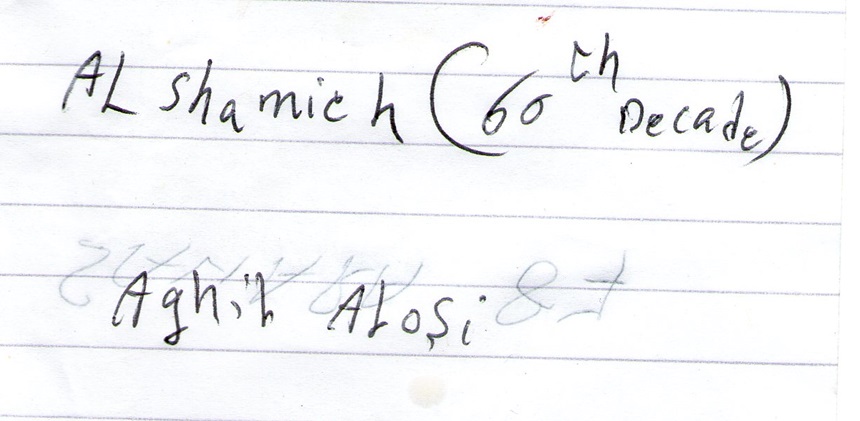 AL shamieh (60th Decade)
Aghil ALosi